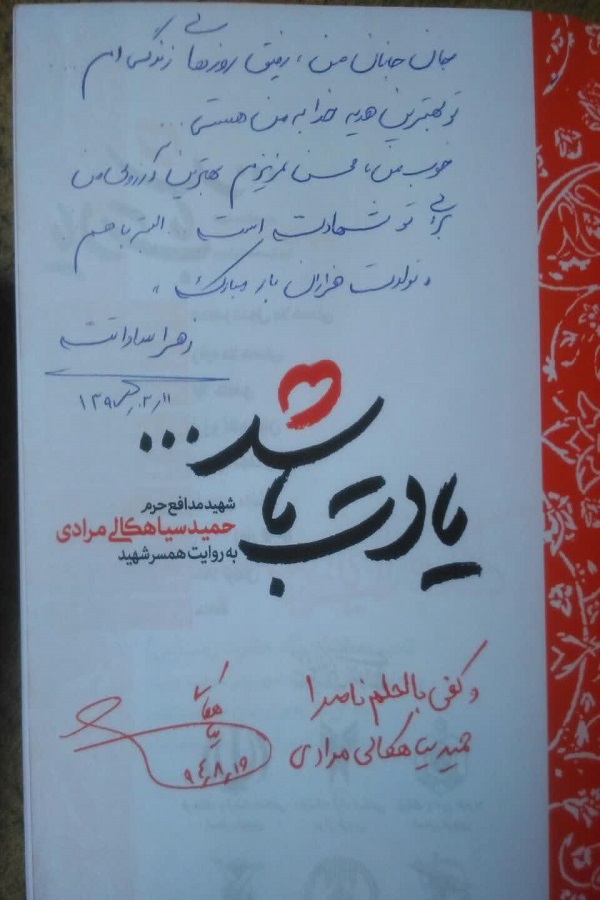 جان جانان من، رفیق روزهای زندگی ام
تو بهترین هدیه خدا به من هستی
خوب من، محسن عزیزم بهترین آرزوی من
برای تو شهادت است. البته با هم
«تولدت هزاران بار مبارک»
زهرا سادات
یادت باشد...
شهید مدافع حرم
حمید سیاهکالی مرادی
به روایت همسر شهید
و کفی بالحلم ناصرا
حمید سیاهکالی مرادی
۹۴،۸،۱۹